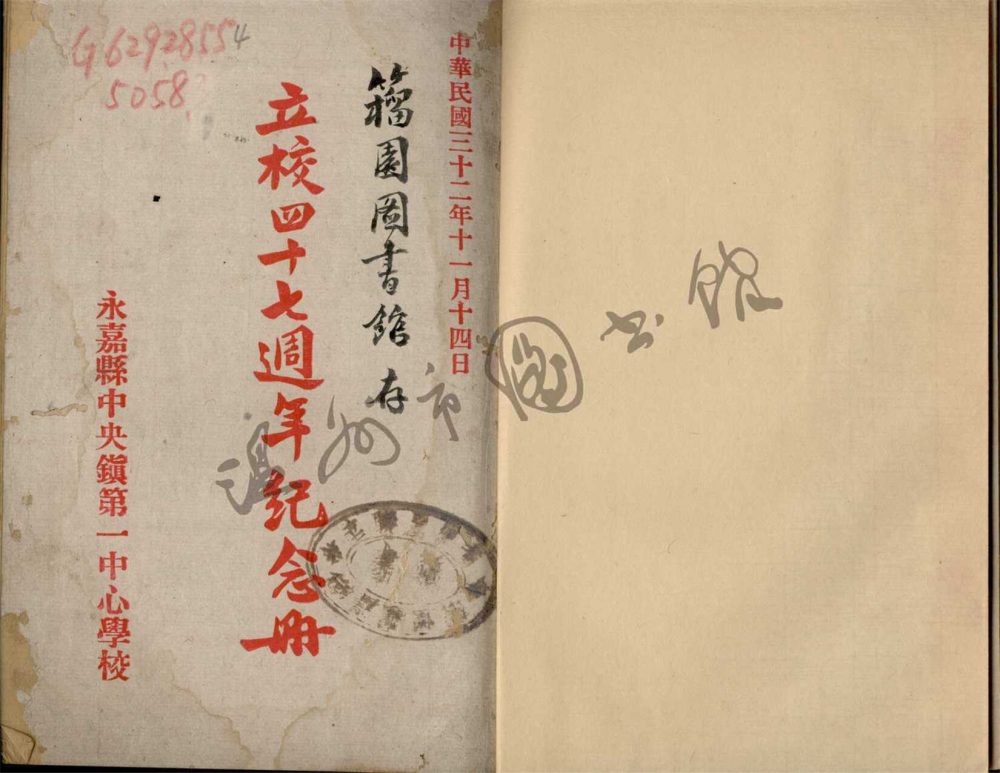 中華民國三十二年十一月十四日
籀園圖書館存
立校四十七週年纪念册
永嘉縣中央鎮第一中心學校
G62928554
5058
温州市图书馆